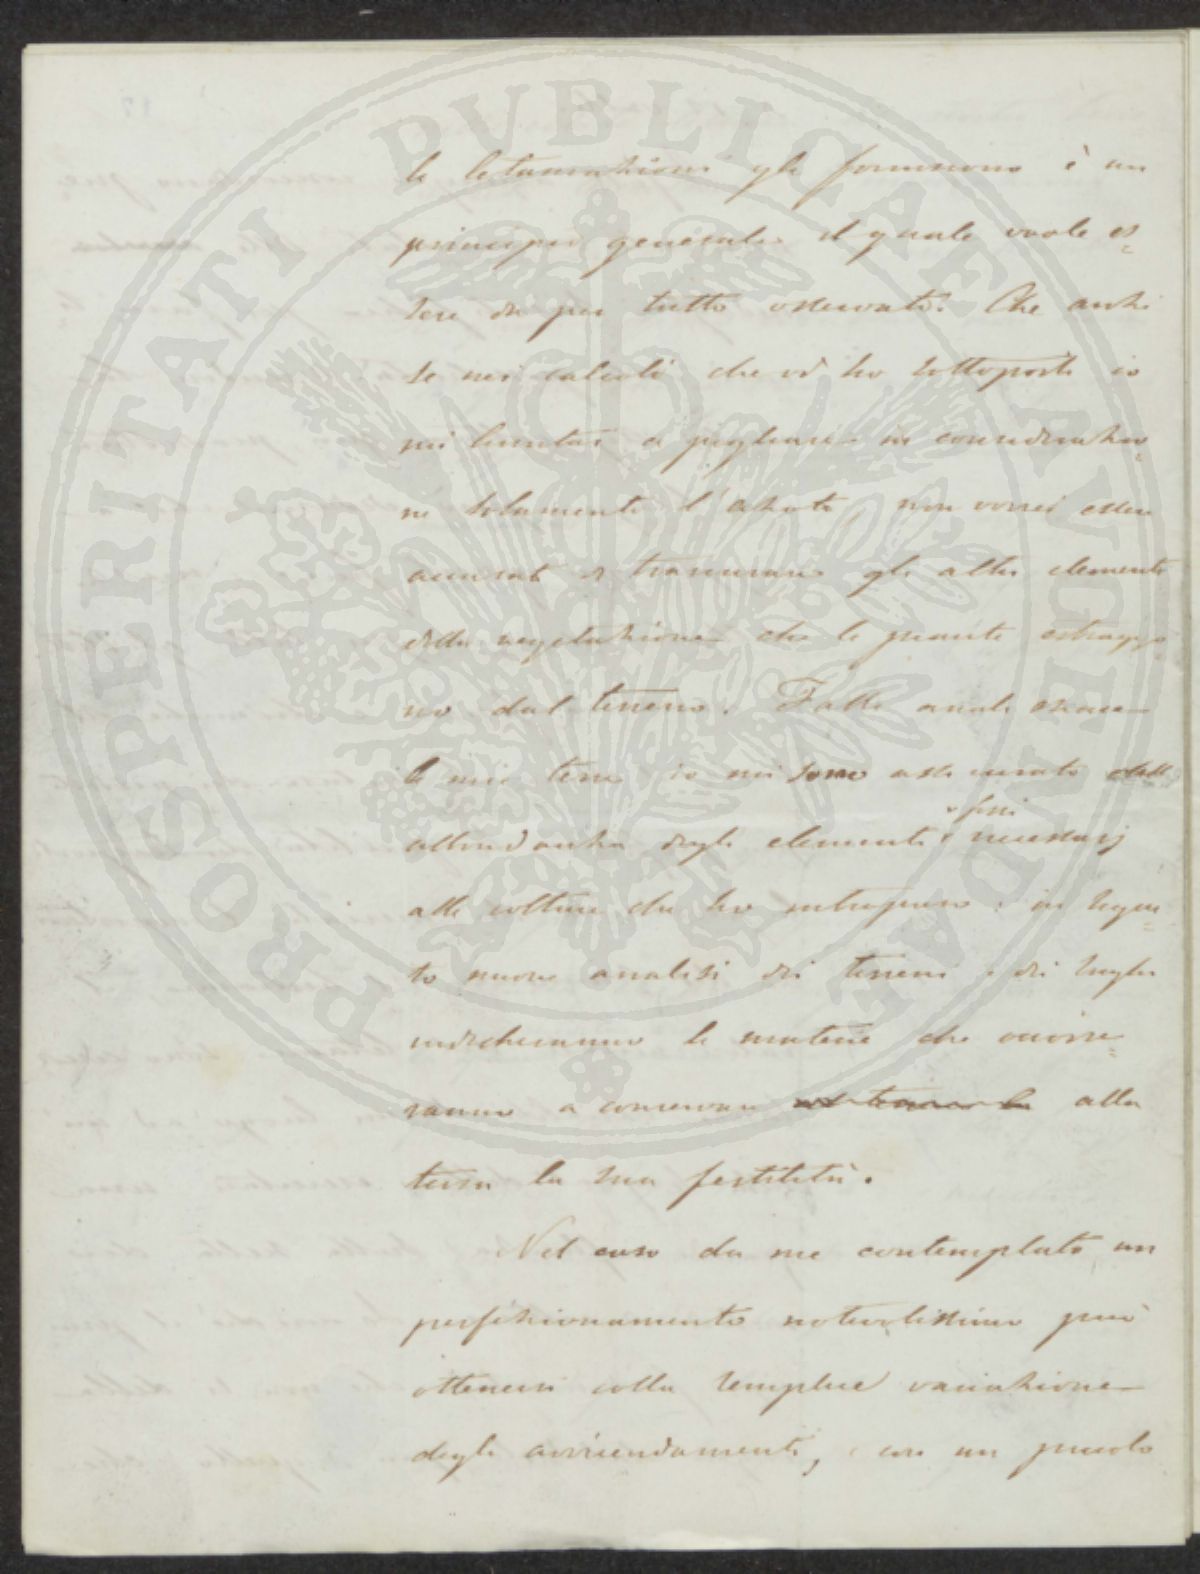 PROSPERITATI PVBLICAE AVGENDAE
le letamazioni gli forniscono è un
principio generale il quale vuole es=
sere da per tutto osservato. Che anzi
se nei calcoli che vi ho sottoposti io
mi limitai a pigliare in considerazio=
ne solamente l'azoto, non vorrei essere
accusato di trascurare gli altri elementi
della vegetazione che le piante estraggo=
no dal terreno. Fatte analizzare
le mie terre io mi sono assicurato dell'
abbondanza degli elementi fissi necessarj
alle colture che ho intrapreso: in segui=
to nuove analisi dei terreni e dei
indicheranno le materie che occorre=
ranno a conservare alla
terra la sua fertilità.
Nel caso da me contemplato un
perfezionamento notevolissimo può
ottenersi colla semplice variazione
degli avvicendamenti, con un piccolo